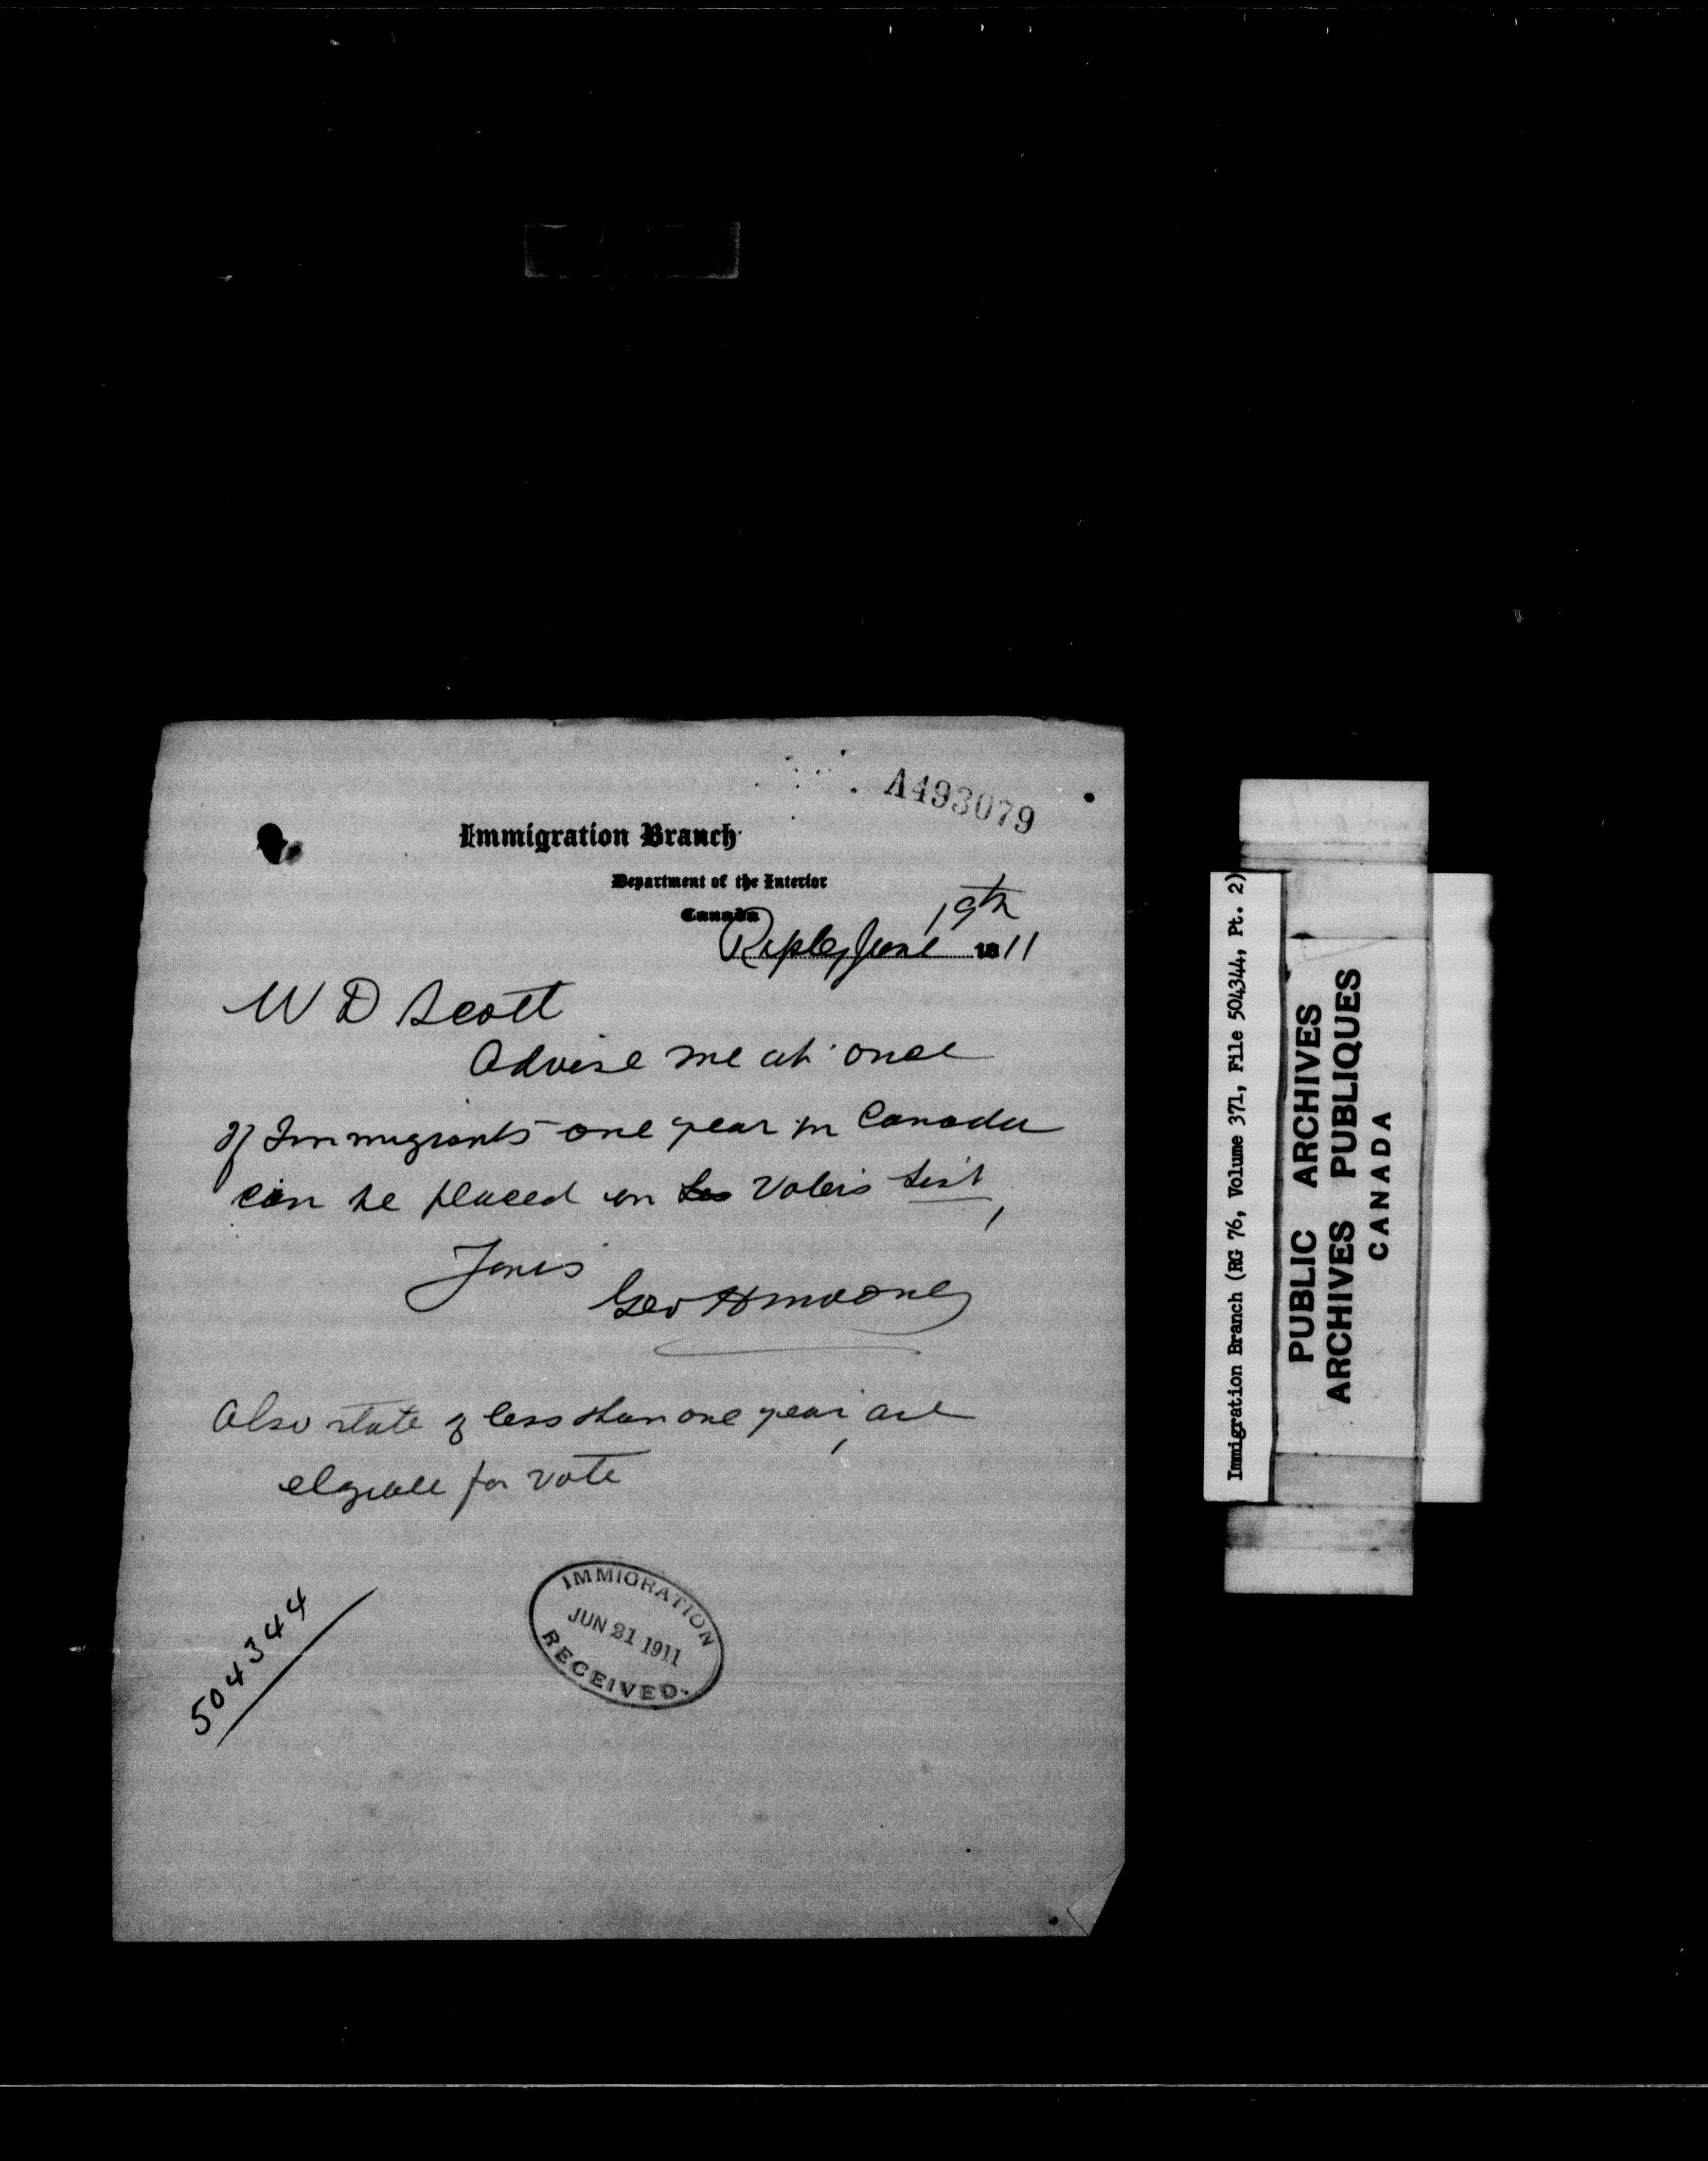 A493079
Immigration Branch
Department of the Interior
Canada
Ripley June 19th 1911
W D Scott
Advise me at once
if Immigrants one year in Canada
can be placed on Voters List,
Yours
Geo H Mooney
Also state if less than one year, are
elgible for vote
IMMIGRATION
JUN 21 1911
RECEIVED
504344
Immigration Branch (RG 76, Volume 371, File 504344, Pt. 2)
PUBLIC ARCHIVES
ARCHIVES PUBLIQUES
CANADA